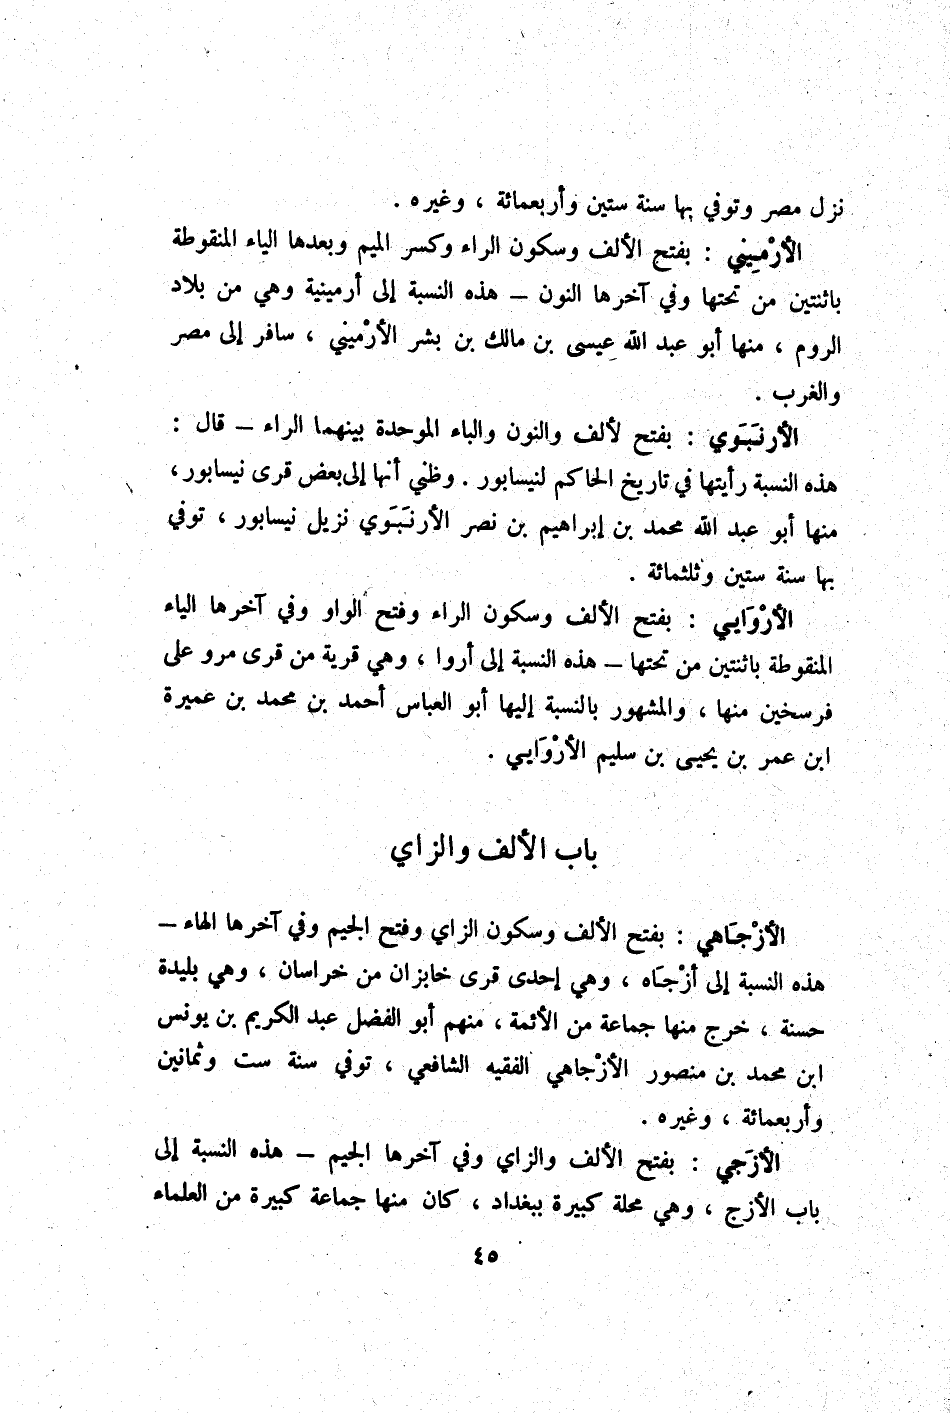 نزل مصر وتوفي بها سنة ستين وأربعمائة ، وغيره .
الأرْمِيني : بفتح الألف وسكون الراء وكسر الميم وبعدها الياء المنقوطة
باثنتين من تحتها وفي آخرها النون – هذه النسبة إلى أرمينية وهي من بلاد
الروم ، منها أبو عبد الله عيسى بن مالك بن بشر الأرْميني ، سافر إلى مصر
والغرب .
الأرنَبَوي : بفتح لألف والنون والباء الموحدة بينهما الراء – قال :
هذه النسبة رأيتها في تاريخ الحاكم لنيسابور . وظني أنها إلى بعض قرى نيسابور ،
منها أبو عبد الله محمد بن إبراهيم بن نصر الأرنَبَوي نزيل نيسابور ، توفي
بها سنة ستين وثلثمائة .
الأرْوَايي : بفتح الألف وسكون الراء وفتح الواو وفي آخرها الياء
المنقوطة باثنتين من تحتها – هذه النسبة إلى أروا ، وهي قرية من قرى مرو على
فرسخين منها ، والمشهور بالنسبة إليها أبو العباس أحمد بن محمد بن عميرة
ابن عمر بن يحيى بن سليم الأرْوَايي .
باب الألف والزاي
الأزْجَاهي : بفتح الألف وسكون الزاي وفتح الجيم وفي آخرها الهاء –
هذه النسبة إلى أزْجَاه ، وهي إحدى قرى خابزان من خراسان ، وهي بليدة
حسنة ، خرج منها جماعة من الأئمة ، منهم أبو الفضل عبد الكريم بن يونس
ابن محمد بن منصور الأزْجاهي الفقيه الشافعي ، توفي سنة ست وثمانين
وأربعمائة ، وغيره .
الأزَجي : بفتح الألف والزاي وفي آخرها الجيم – هذه النسبة إلى
باب الأزج ، وهي محلة كبيرة ببغداد ، كان منها جماعة كبيرة من العلماء
٤٥